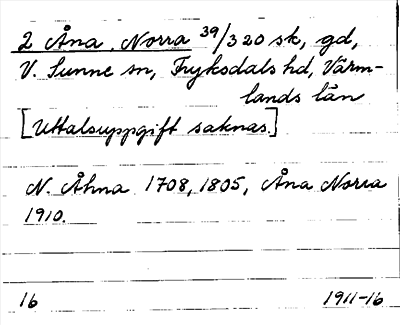 2 Åna, Norra 39/320 sk, gd,
V. Sunne sn, Fryksdals hd, Värm-
lands län
[Uttalsuppgift saknas.]
N. Åhna 1708, 1805, Åna Norra
1910.
16 1911-16